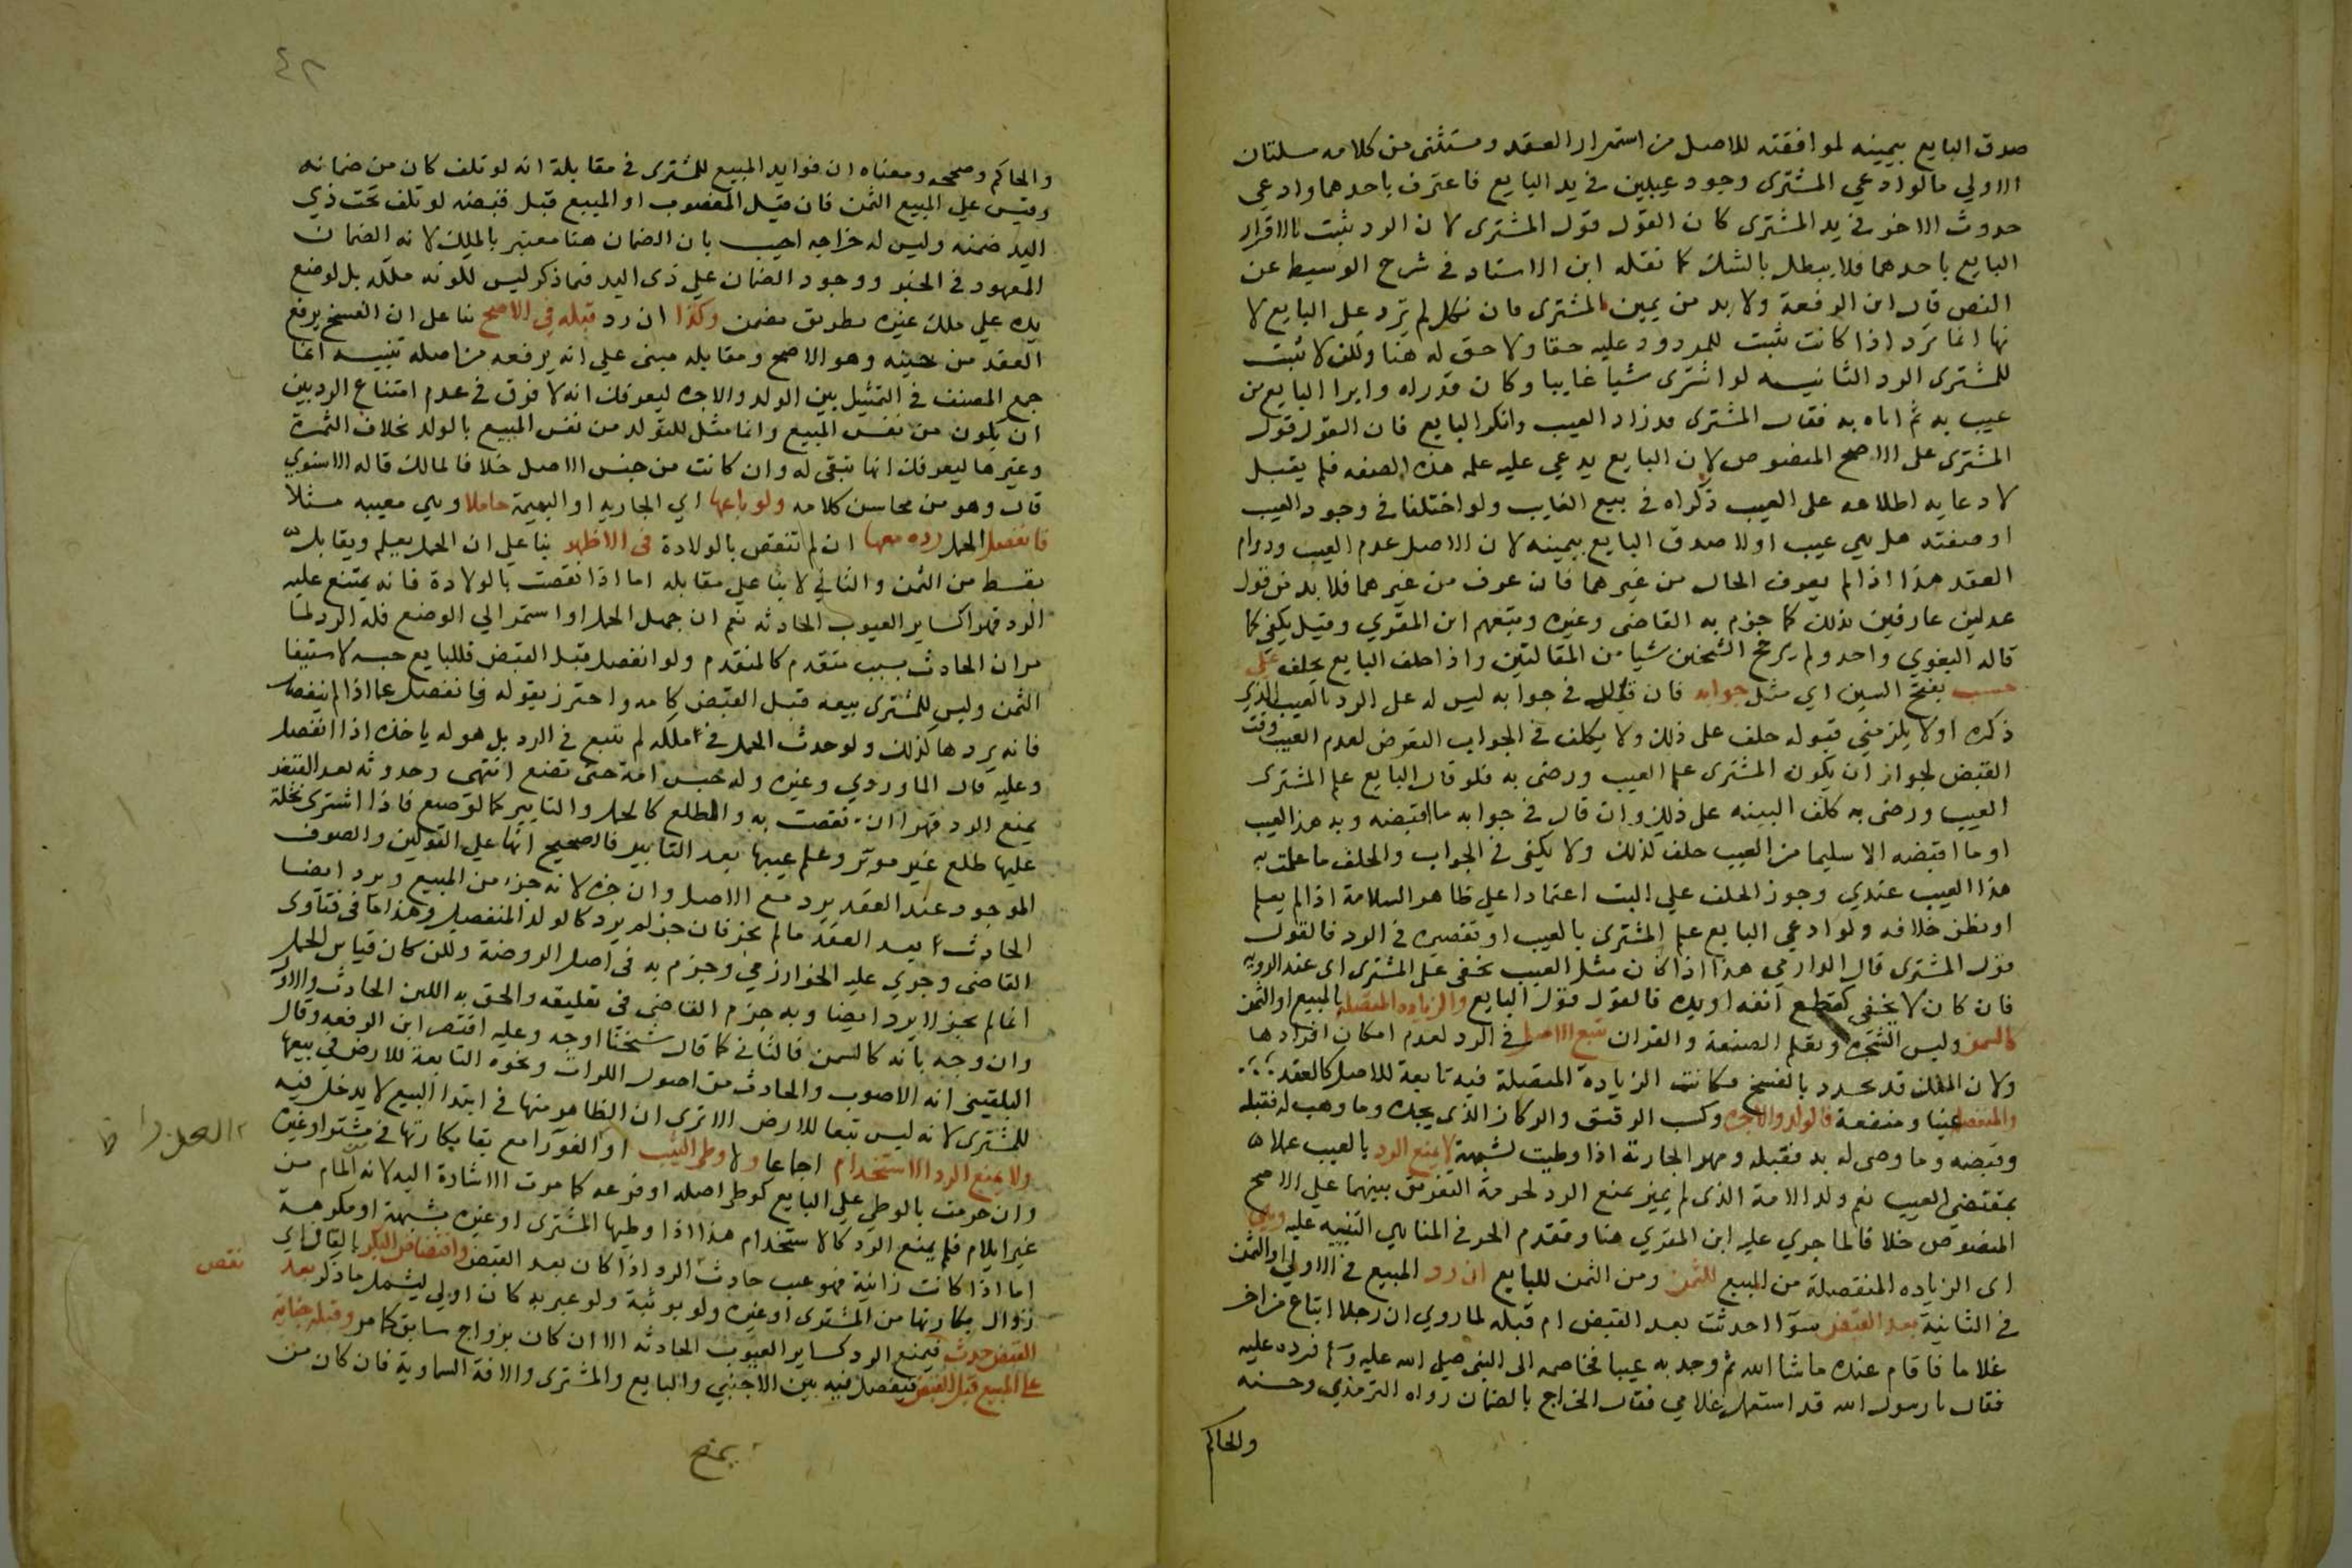 صدق البايع بيمينه لموافقته للاصل من استمرار العقد ومستثنى من كلامه مسلتان
الاولي مالوادعي المشترى وجود عيبين في يد البايع فاعترف باحدهما وادعي
حدوث الاخر في يد المشترى كان القول قول المشترى لان الرد ثبت بالاقرار
البايع باحدهما فلا يبطل بالشك كما نقله ابن الاستاد في شرح الوسيط عن
النص قال ابن الرفعة ولا بد من يمين المشترى فان نكل لم ترد على البايع لا
نها انما ترد اذا كانت تثبت للمردود عليه حقا ولا حق له هنا ولكن لا تثبت
للمشترى الرد الثانيه لو اشترى شيا غايبا وكان قد راه وابرا البايع من
عيب به ثم اتاه به فقال المشترى قد زاد العيب وانكر البايع فان القول قول
المشترى على الاصح المنصوص لان البايع يدعي عليه علمه هذه الصفه فلم يقبل
لادعايه اطلاعه على العيب ذكراه في بيع الغايب ولو اختلفا في وجود العيب
او صفته هل هي عيب اولا صدق البايع بيمينه لان الاصل عدم العيب ودوام
العقد هذا اذا لم يعرف الحال من غيرهما فان عرف من غيرهما فلا بد من قول
عدلين عارفين بذلك كما جزم به القاضى وغيره وتبعهم ابن المقري وقيل يكفي كما
قاله البغوي واحد ولم يرجح الشيخين شيا من المقالتين واذا حلف البايع يحلف على
حسب بفتح السين اي مثل جوابه فان قال في جوابه ليس له على الرد بالعيب الذي
ذكره اولا يلزمني قبوله حلف على ذلك ولا يكلف في الجواب التعرض لعدم العيب وقت
القبض لجواز ان يكون المشترى علم العيب ورضى به فلو قال البايع علم المشترى
العيب ورضى به كلف البينه على ذلك وان قال في جوابه ما اقبضته وبه هذا العيب
او ما اقبضه الا سليما من العيب حلف كذلك ولا يكفى في الجواب والحلف ما علمت به
هذا العيب عندي وجوز الحلف علي البت اعتمادا علي ظاهر السلامة اذا لم يعلم
او يظن خلافه ولو ادعي البايع علم المشترى بالعيب او تقصيره في الرد فالقول
قول المشترى قال الدارمي هذا اذا كان مثل العيب يخفى على المشترى اى عند الرويه
فان كان لا يخفى كقطع انفه او يده فالقول قول البايع والزياده المتصله بالمبيع او الثمن
كالسمن وليس الشجره وتعلم الصنعة والقران تتبع الاصل في الرد لعدم امكان افرادها
ولان الملك قد تجدد بالفسخ فكانت الزيادة المتصلة فيه تابعة للاصل كالعقد
والمنفصله عينا ومنفعة فالولد والاجره وكسب الرقيق والركاز الذى يجده وما وهب له فقبله
وقبضه وما وصى له به فقبله ومهر الجارية اذا وطيت لشبهة لا يمنع الرد بالعيب عملا
بمقتضي العيب نعم ولد الامة الذى لم يميز يمنع الرد لحرمة التفرىق بينهما علي الاصح
المنصوص خلافا لما جري عليه ابن المقري هنا ومتقدم الحرفي المناهي التنبيه عليه وهي
اى الزياده المنفصلة من المبيع للمشترى ومن الثمن للبايع ان رد المبيع في الاولي او الثمن
في الثانية بعد القبض سوآ احدثت بعد القبض ام قبله لما روي ان رجلا ابتاع من اخر
غلاما فاقام عنده ماشا الله ثم وجد به عيبا فخاصمه الى النبى صلي الله عليه وسلم فرده عليه
فقال يا رسول الله قد استعمل غلامي فقال الخراج بالضمان رواه الترمذي وحسنه
والحاكم
٤٢
والحاكم وصححه ومعناه ان فوايد المبيع للمشترى في مقابلة انه لو تلف كان من ضمانه
وقيس علي المبيع الثمن فان قيل المغصوب او المبيع قبل قبضه لو تلف تحت ذي
اليد ضمنه وليس له خراجه اجيب بان الضمان هنا معتبر بالملك لانه الضمان
المعهود في الخبر ووجود الضمان علي ذى اليد فيما ذكر ليس لكونه ملكه بل لوضع
يده علي ملك غيره بطريق مضمن وكذا ان رد قبله في الاصح بنا على ان الفسخ يرفع
العقد من حينه وهو الاصح ومقابله مبنى علي انه يرفعه من اصله تنبيه انما
جمع المصنف في التمثيل بين الولد والاجره ليعرفك انه لا فرق في عدم امتناع الرد بين
ان يكون من نفس المبيع وانما مثل للمتولد من نفس المبيع بالولد بخلاف الثمرة
وغيرها ليعرفك انها تبقى له وان كانت من جنس الاصل خلافا لمالك قاله الاسنوي
قال وهو من محاسن كلامه ولو باعها اي الجاريه او البهيمة حاملا وهي معيبه مثلا
فانفصل الحمل رده معها ان لم تنقص بالولادة في الاظهر بنا علي ان الحمل يعلم ويقابل
بقسط من الثمن والثاني لا بنا علي مقابله اما اذا نقصت بالولادة فانه يمتنع عليه
الرد قهرا كساير العيوب الحادثه نعم ان جهل الحمل او استمر الي الوضع فله الرد لما
مر ان الحادث بسبب متقدم كالمتقدم ولو انفصل قبل القبض فللبايع حبسه لاستيفا
الثمن وليس للمشترى بيعه قبل القبض كامه واحترز بقوله فانفصل عما اذا لم ينفصل
فانه يردها كذلك ولو حدث الحمل في ملكه لم تتبع في الرد بل هو له ياخذه اذا انفصل
وعليه قال الماوردي وغيره وله حبس امه حتى تضع انتهى وحدوثه بعد القبض
يمنع الرد قهرا ان نقصت به والطلع كالحمل والتابير كالوضع فاذا اشترى نخلة
عليها طلع غير موبر وعلم عيبها بعد التابير فالصحيح انها علي القولين والصوف
الموجود عند العقد يرد مع الاصل وان جزه لانه جزء من المبيع ويرد ايضا
الحادث بعد العقد ما لم يجز فان جز لم يرد كالولد المنفصل وهذا ما في فتاوى
القاضي وجري عليه الخوارزمي وجزم به في اصل الروضة ولكن كان قياس الحمل
انما لم يجز لا يرد ايضا وبه جزم القاضي في تعليقه والحق به اللبن الحادث والاول
وان وجه بانه كالسمن فالثاني كما قال شيخنا اوجه وعليه اقتصر ابن الرفعه وقال
البلقينى انه الاصوب والحادث من اصول الكراث ونحوه التابعة للارض في بيعها
للمشترى لانه ليس تبعا للارض الا ترى ان الظاهر منها في ابتدا البيع لا يدخل فيه
ولا يمنع الرد الاستخدام اجماعا ولا وطي الثيب او الغورا مع بقا بكارتها في مشتر او غيره
وان حرمت بالوطي علي البايع كوطي اصله او فرعه كما مرت الاشارة اليه لانه المام من
غير ايلام فلم يمنع الرد كالاستخدام هذا اذا وطيها المشترى او غيره بشبهة او مكرهة
اما اذا كانت زانية فهو عيب حادث الرد اذا كان بعد القبض وافتضاض البكر بالقاف اي
زوال بكارتها من المشترى او غيره ولو بوثبة ولو عبر به كان اولي ليشمل ما ذكر بعد نقص
القبض حدث فيمنع الرد كساير العيوب الحادثه الا ان كان بزواج سابق كما مر وقبله جناية
على المبيع قبل القبض فيفصل فيه بين الاجنبي والبايع والمشترى والافة السماوية فان كان من
يمنع